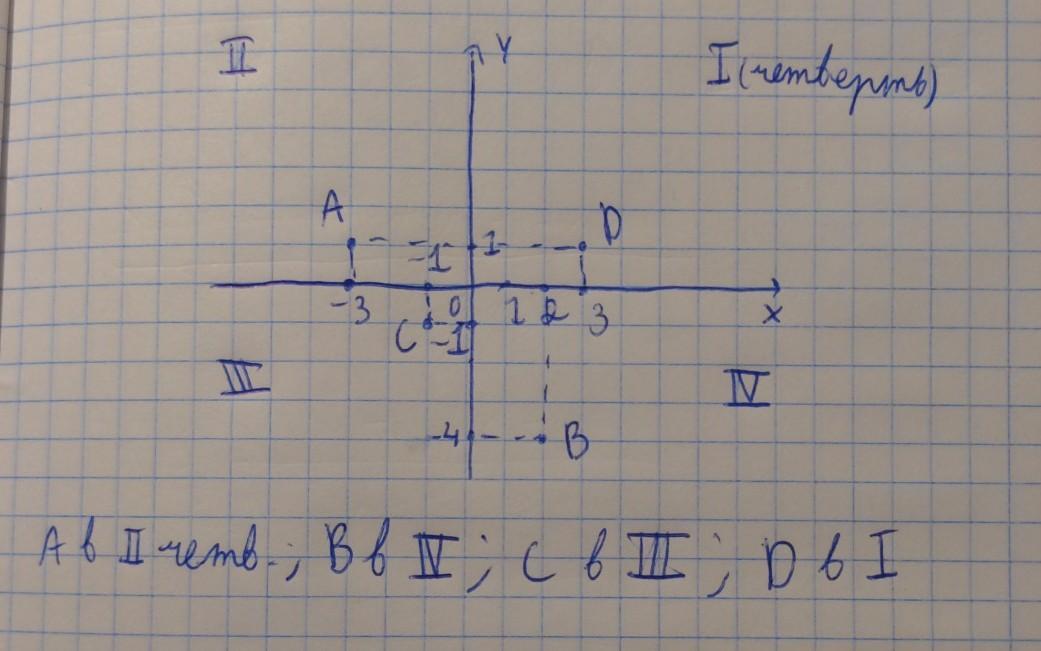 II Y I (четверть)
A D
-1 1
-3 0 1 2 3 X
C -1
III IV
-4 B
A в II четв.; B в IV; C в III; D в I